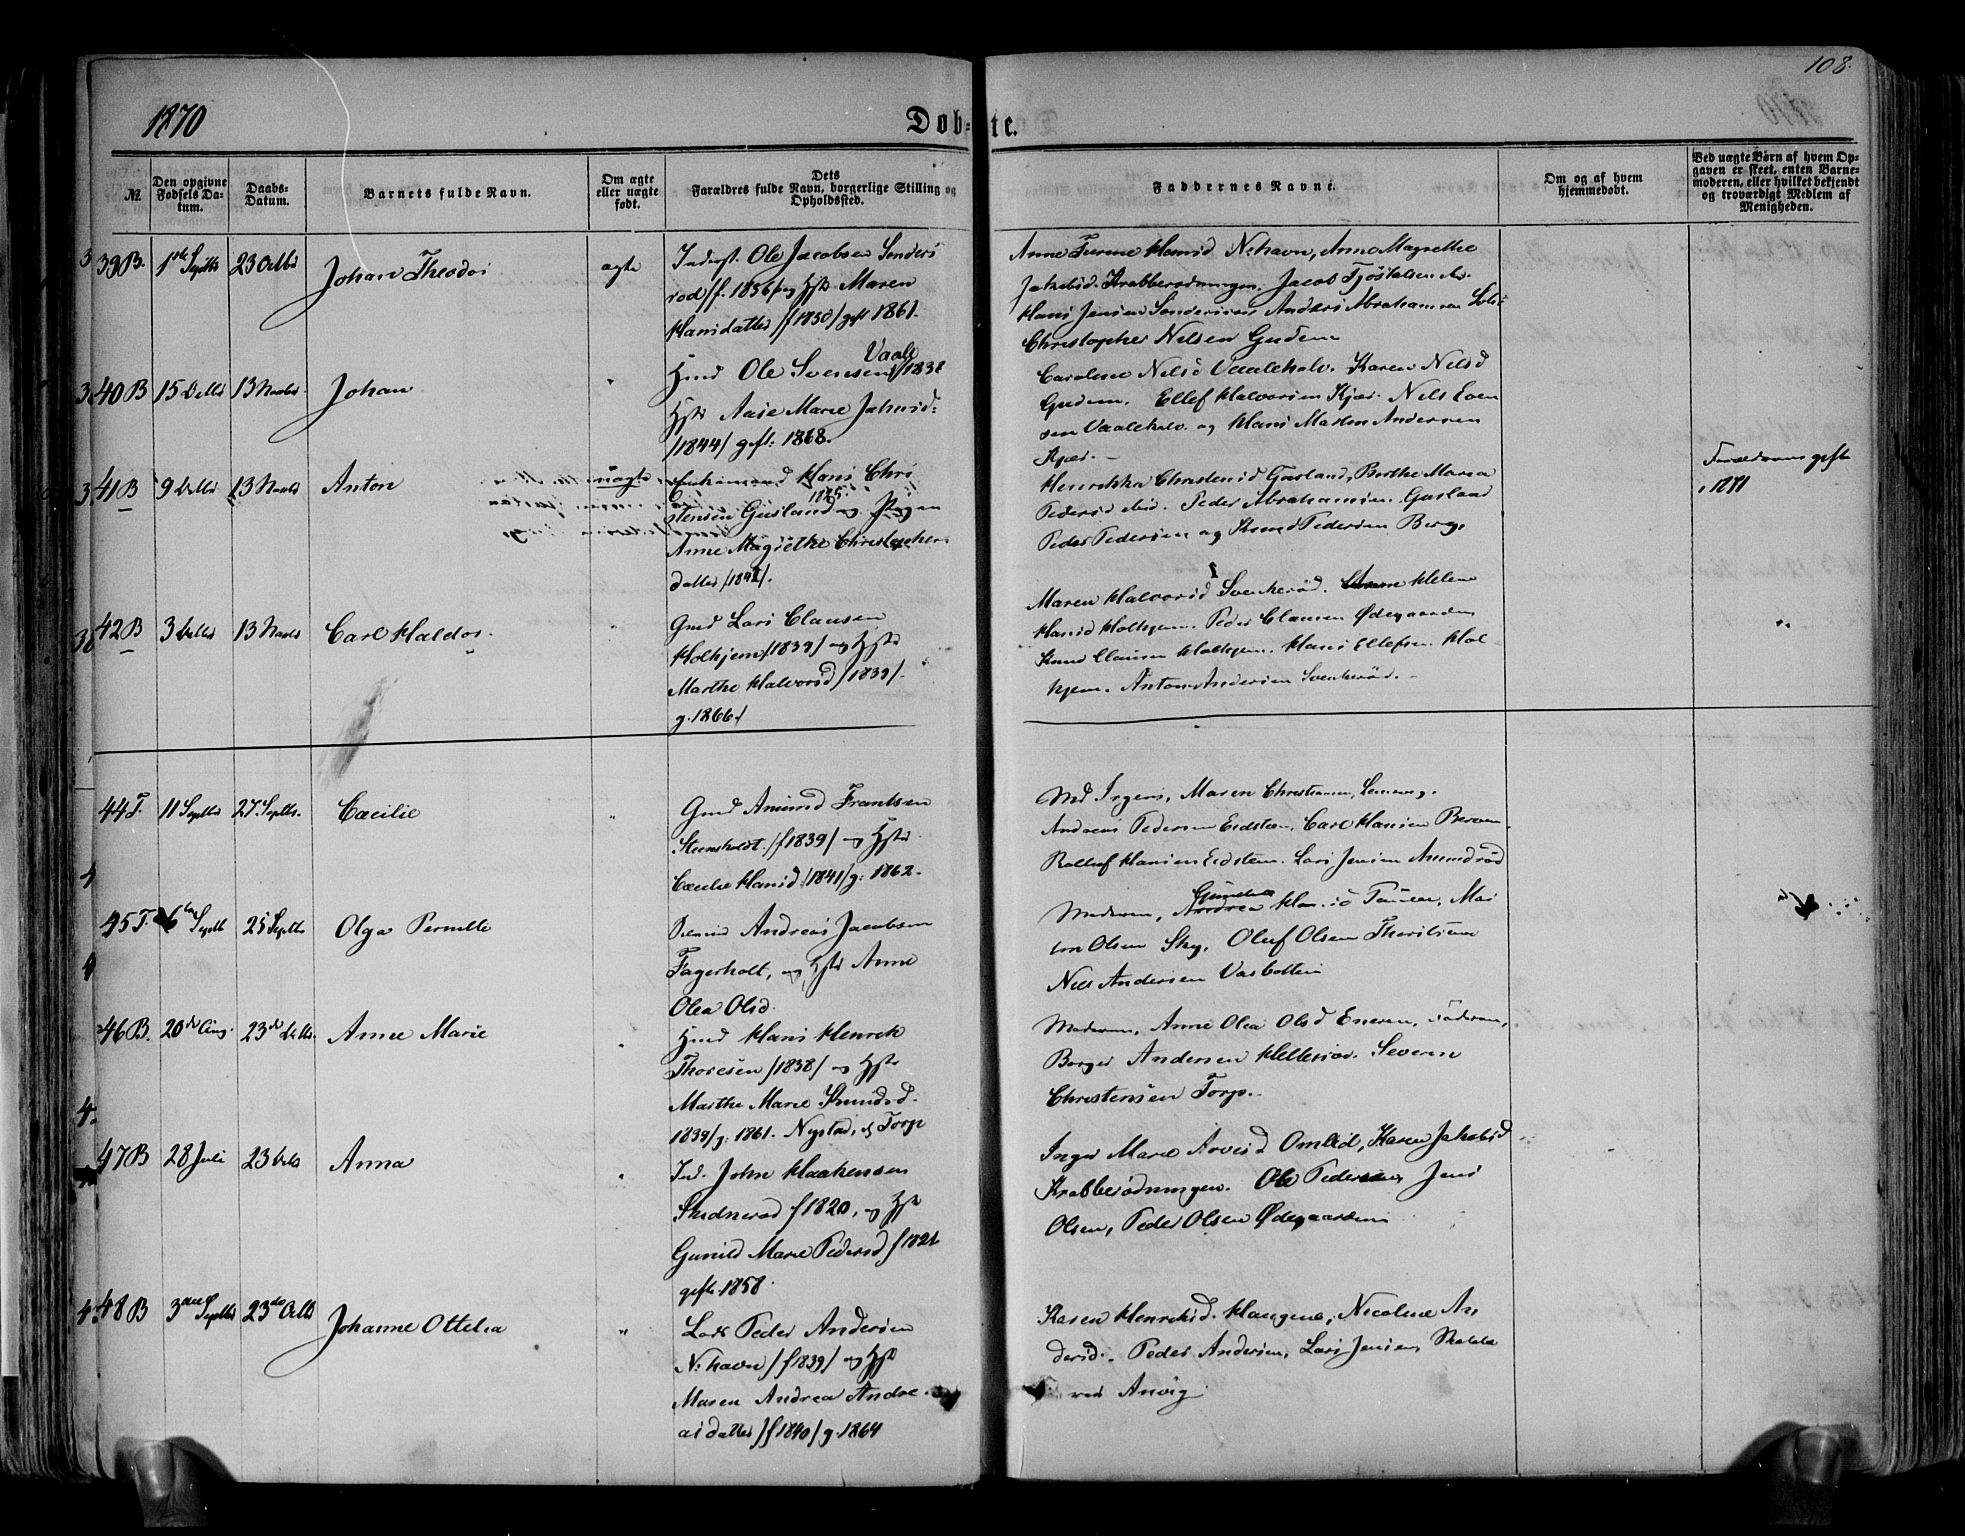 108.
1870
Døb-te.
№
Den opgivne Fødsels Datum.
Daabs-Datum.
Barnets fulde Navn.
Om ægte eller uægte født.
Dets Forældres fulde Navn, borgerlige Stilling og Opholdssted.
Faddernes Navne.
Om og af hvem hjemmedøbt.
Ved uægte Børn af hvem Opgaven er skeet, enten Barnemoderen, eller hvilket bekjendt og troværdigt Medlem af Menigheden.
39B. 1ste Septbr 23 Octbr Johan Theodor ægte
Inderst. Ole Jacobsen Sønders
rød /f. 1836/ og Hstr Maren
Hansdatter /f 1830/ gift 1861.
Anne Hansd N:havn, Anne Magrethe
Jakobsd. Krabberødningen. Jacob Tjøstelsen
Hans Jensen Anders Abrahamsen
Christopher Nilsen Gudem
40B 15 Octbr 13 Novbr Johan "
Hmd Ole Svensen Vaale /1838
Hstr Aase Marie Johnsd:
/1844/ gift: 1868.
Caroline Nilsd Vaalehalv. Karen Nilsd
Gudem. Ellef Halvorsen Kjær. Nils Even
sen Vaalehalv. og Hans Martin Andersen
Kjær. -
41B 9 Octbr 13 Novbr Anton uægte
Enkemand Hans Chri
stensen Gusland 1825 og Pigen
Anne Magrethe Christopher
datter /1842/.
Henrikka Christensd Gusland, Berthe Maria
Pedersd ibid. Peder Abrahamsen Gusland
Peder Pedersen og Knud Pedersen Berg.
Forældrene gift
1871
42B 3 Octbr 13 Novbr Carl Haldor.
Gmd Lars Clausen
Holhjem /1839/ og Hstr
Marthe Halvorsd /1839/.
g. 1866/
Maren Halvorsd Svenkerød. Helene
Hansd Holhjem. Peder Clausen Ødegaarden
Knud Clausen Holhjem. Hans Ellefsen Hol-
hjem. Anton Andersen Svenkerød. -
44T. 11 Septbr 27. Septbr. Cæcilie "
Gmd Amund Frantsen
Steensholdt /f 1839/ og Hstr
Cæcilie Hansd /1841/ g: 1862.
Md Irgens, Maren Christiansen,
Andreas Pedersen Eidsten, Carl Hansen
Rolluf Hansen Eidsten. Lars Jensen Amundrød
45T. 6te Septb 25 Septbr Olga Pernille
Andreas Jacobsen
Fagerholt, og Hstr Anne
Olea Olsd.
Moderen, Gunild Hansd Mar
ten Olsen Sky, Oluf Olsen
Nils Andersen Vasbotten
46B. 20de Aug. 23de Octbr. Anne Marie "
Hmd Hans Henrik
Thoresen /1838/ og Hstr
Marthe Marie Knudsd.
1839/ g: 1861. Nystad, u Torp
Moderen, Anne Olea Olsd Faderen,
Borger Andersen Hellerød. Severin
Christensen Torp. -
47B 28 Juli 23 Octb Anna "
Ind. John Haakensen
Skidnerød f 1820, og Hstr
Gunild Marie Pedersd f 1821
gift. 1858.
Inger Marie Arvesd Omlid, Karen Jakobsd
Krabberødningen. Ole Pedersen, Jens
Olsen, Peder Olsen Ødegaarden
48B 3die Septbr 23de Octb Johanne Ottelia "
Lods Peder Andersen
N:havn /f 1839/ og Hstr
Maren Andrea Andre
asdatter /f 1840/ g. 1864
Karen Henriksd. Haugene, Nicoline An
dersd. Peder Andersen, Lars Jensen
ved Anvig